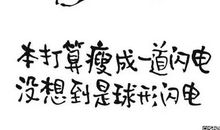 本打算瘦成一道闪电
没想到是球形闪电